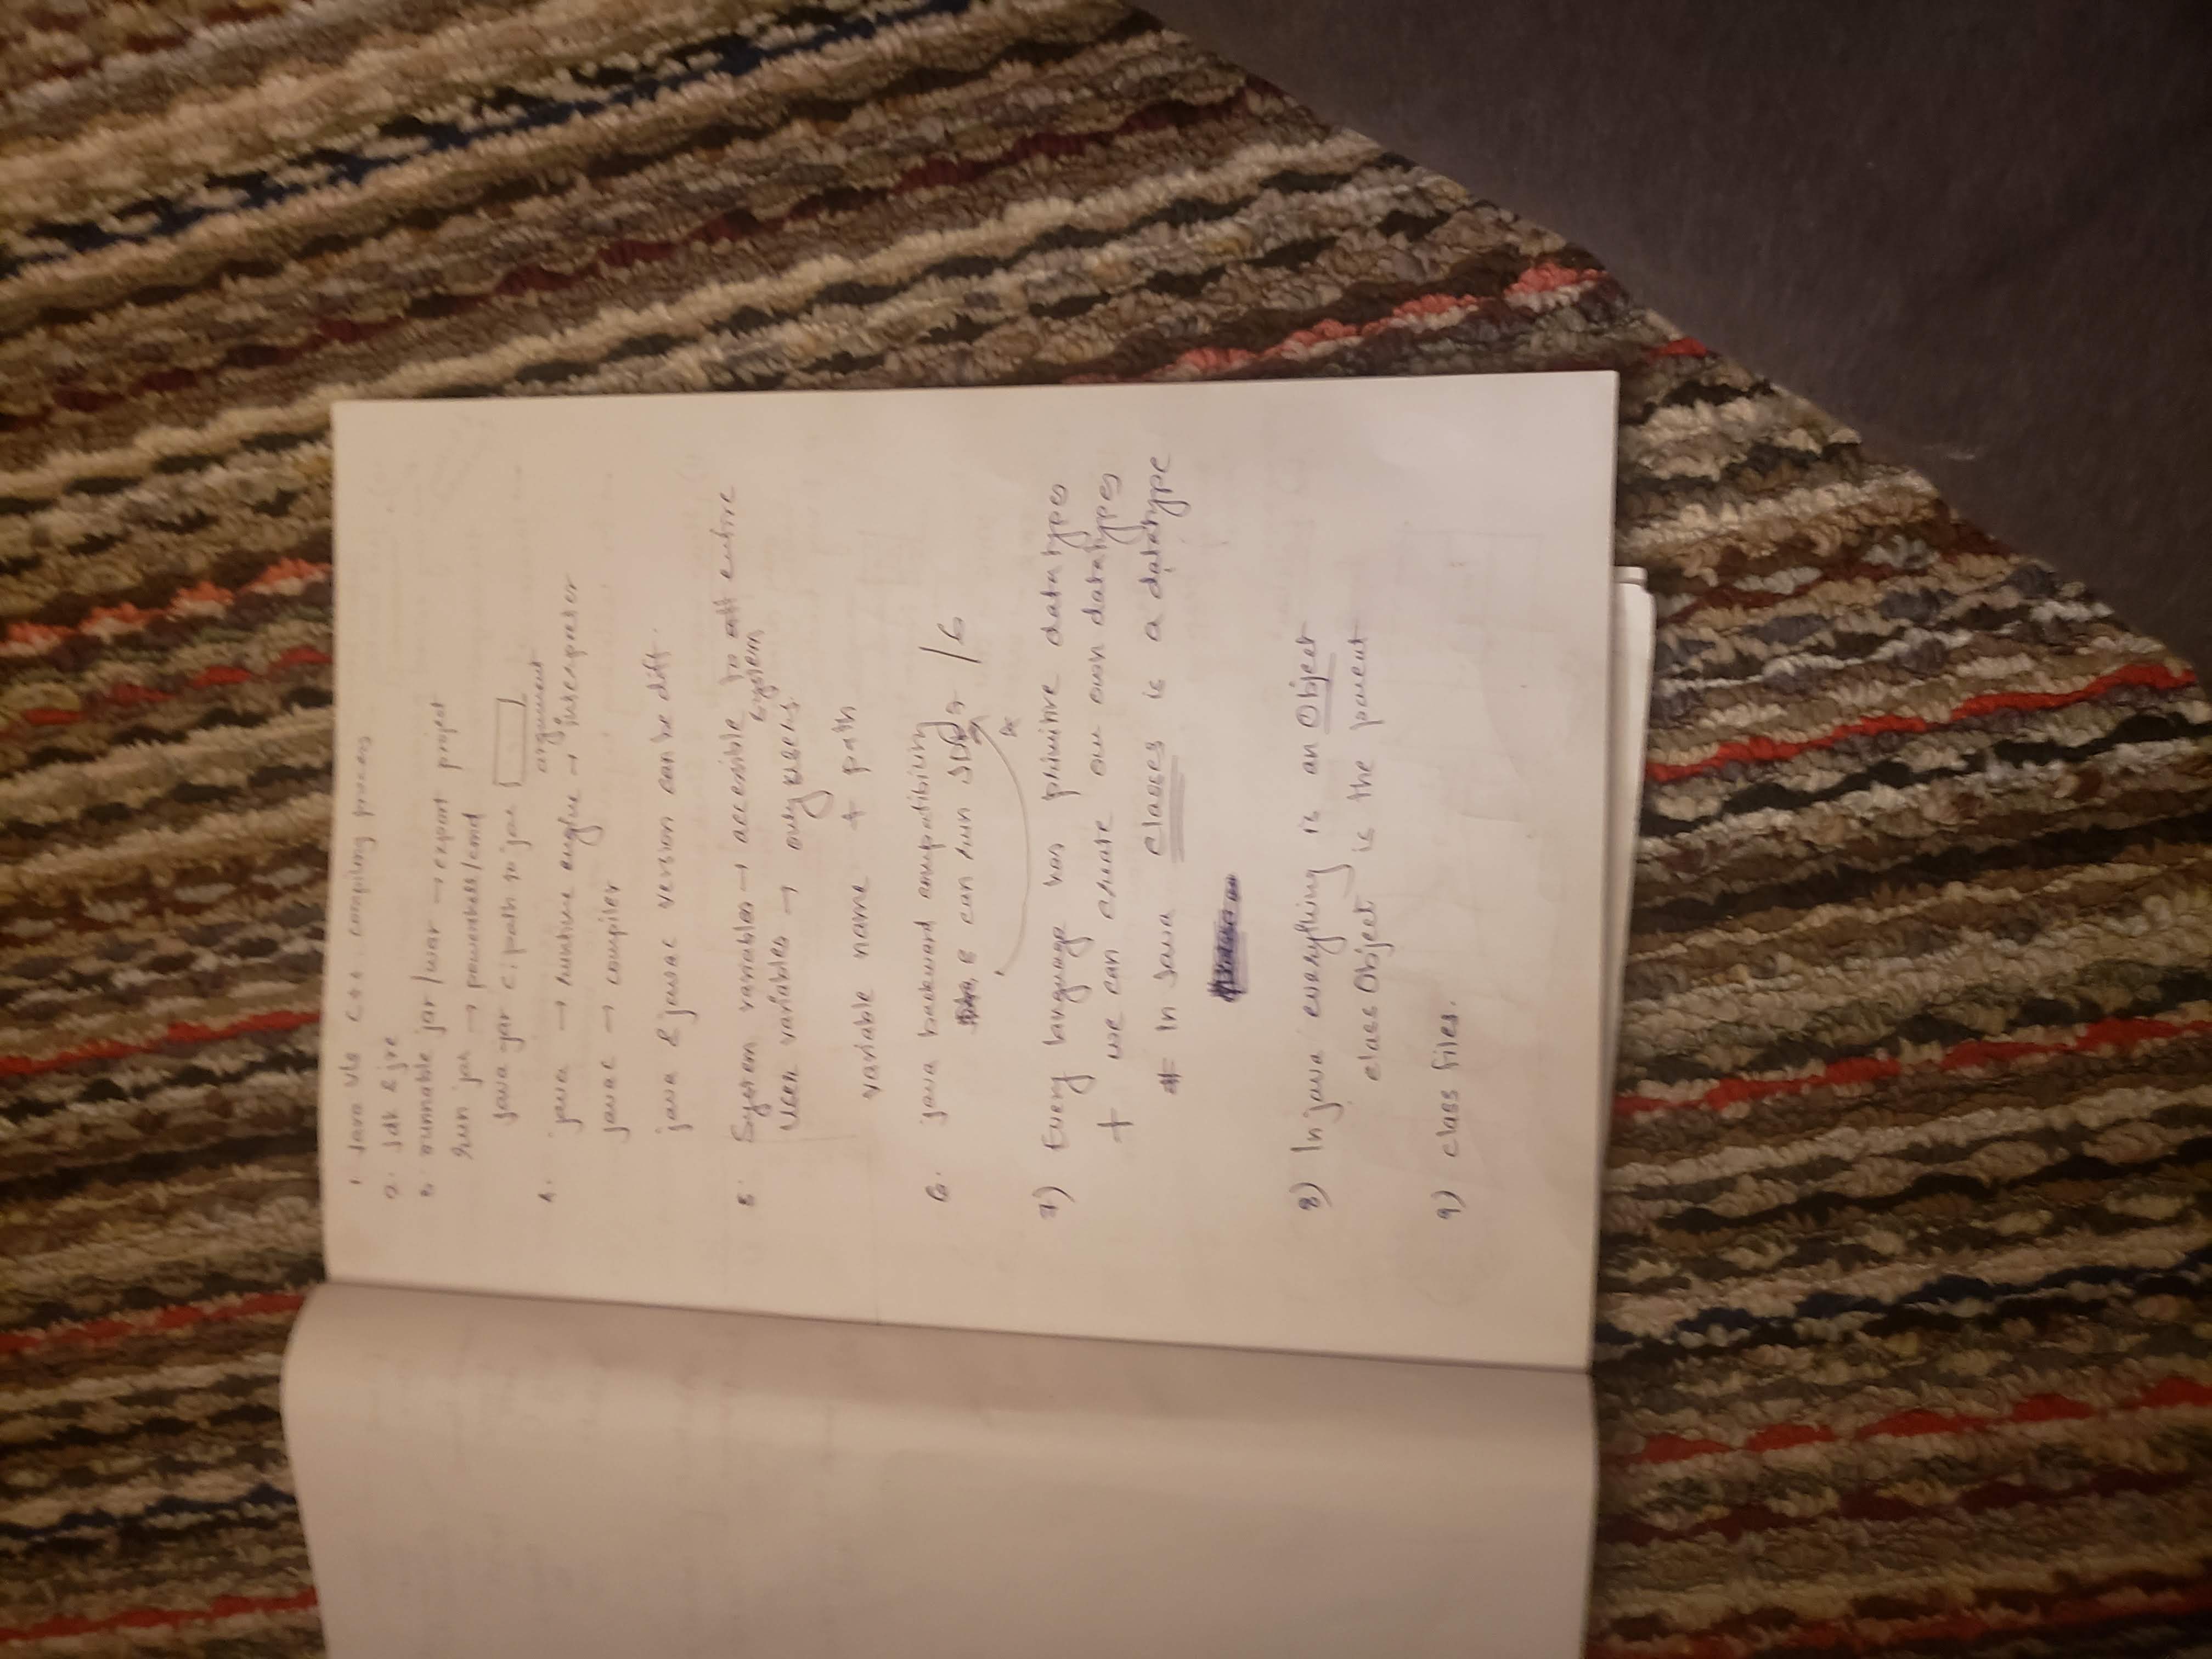 1. Java v/s C++ compiling process
2. Jdk & jre
3. runnable jar/war → export project
run jar → powershell/cmd
java -jar c:path to jar
argument
4. java → runtime engine → interpreter
javac → compiler
java & javac version can be diff.
5. System variables → accessible to all entire
system
User variables → only users.
variable name + path
6. java backward compatibility
8 can run JDK 7 / 6
7) Every language has primitive datatypes
+ we can create our own datatypes
# In Java classes is a datatype
8) In java everything is an Object
class Object is the parent
9) class files.